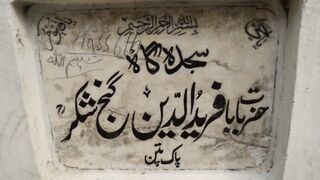 بسم الله الرحمن الرحيم
سجدہ گاہ
حضرت بابا فرید الدین گنج شکر
پاک پتن